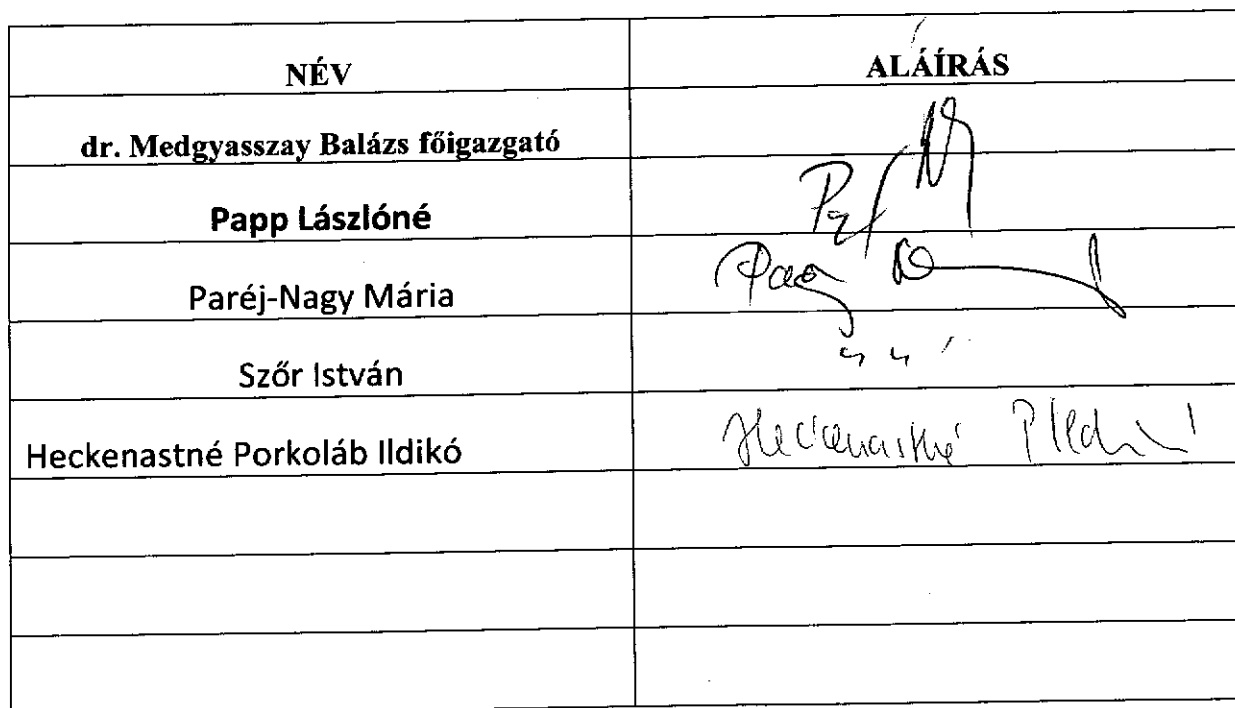 NÉV ALÁÍRÁS
dr. Medgyasszay Balázs főigazgató
Papp Lászlóné
Paréj-Nagy Mária
Szőr István
Heckenastné Porkoláb Ildikó Heckenastné